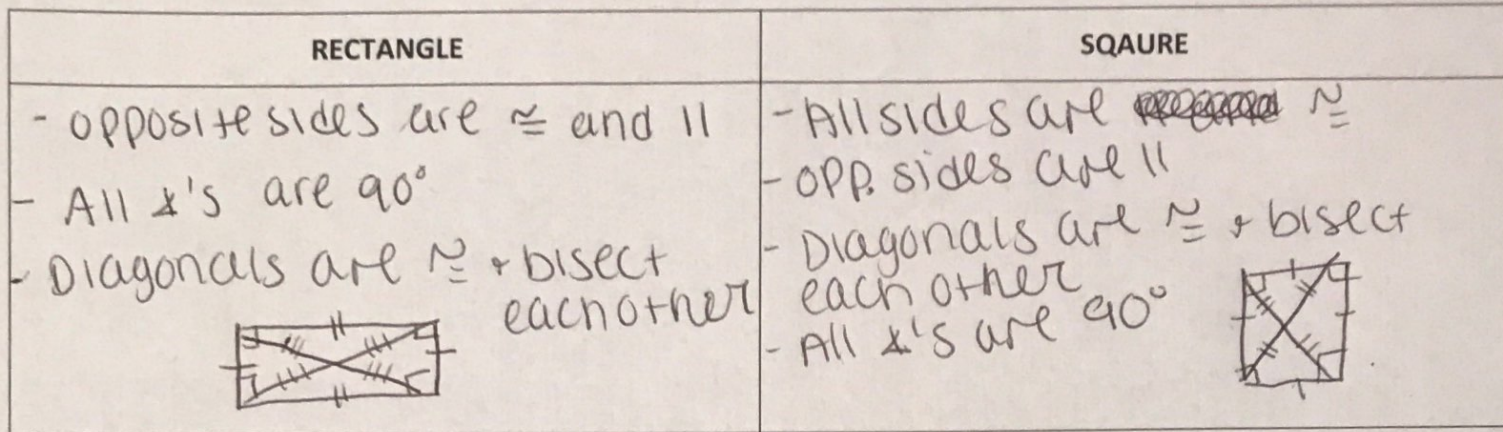 RECTANGLE
- opposite sides are ≅ and ||
- All ∡'s are 90°
- Diagonals are ≅ + bisect
each other
SQAURE
- All sides are ≅
- opp. sides are ||
- Diagonals are ≅ + bisect
each other
- All ∡'s are 90°